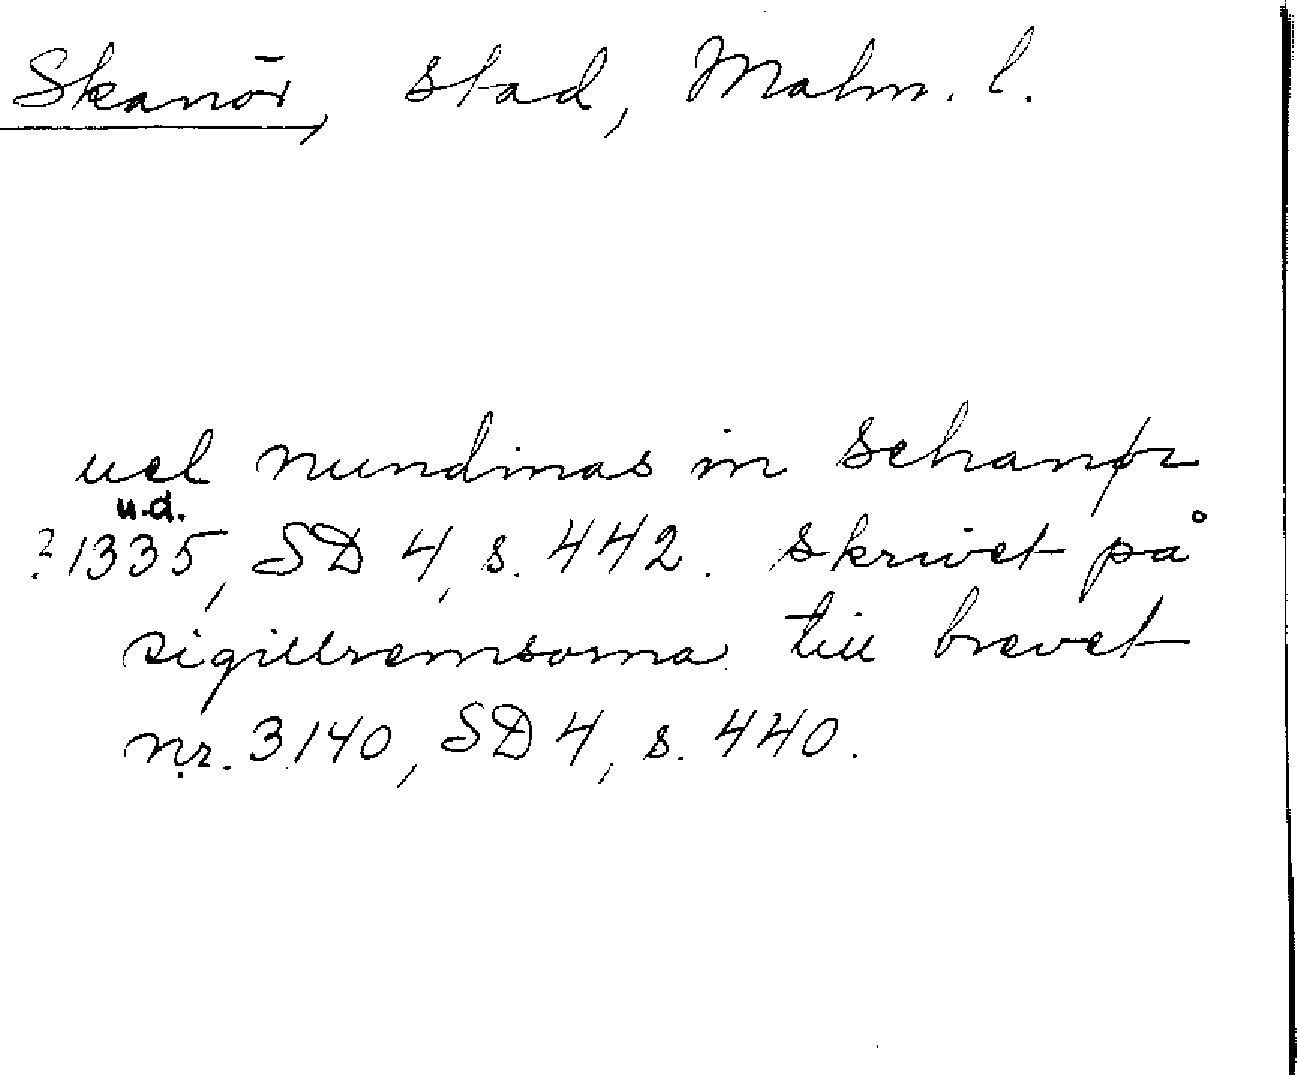 Skanör, stad, Malm. l.
uel nundinas in Schanør
u.d.
? 1335, SD 4, s. 442. skrivet på
sigillremsorna till brevet
nr. 3140, SD 4, s. 440.